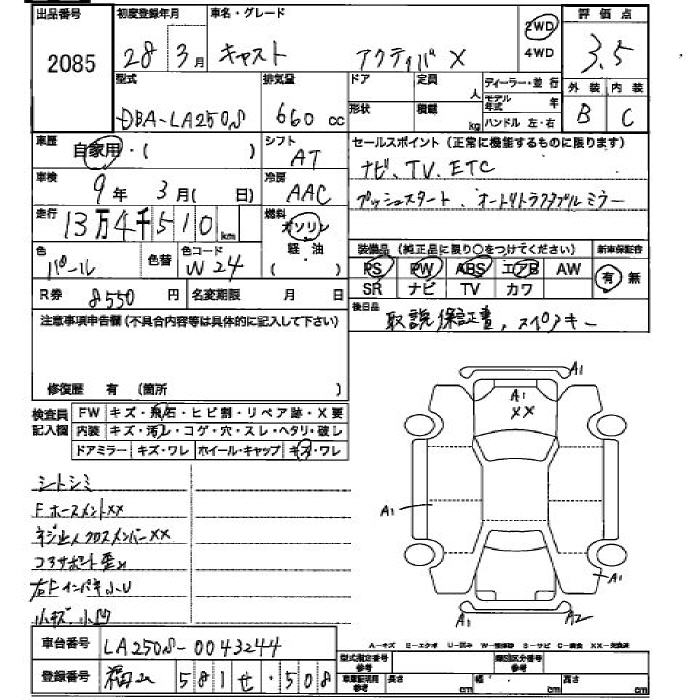 出品番号
2085
初度登録年月
28年 3月
車名・グレード
キャスト アクティバ X
2WD
4WD
評価点
3.5
外装 内装
B C
型式
DBA-LA250S
排気量
660 cc
ドア
定員 人
形状
積載 kg
ディーラー・並行
モデル年式 年
ハンドル 左・右
車歴
自家用・( )
シフト
AT
セールスポイント(正常に機能するものに限ります)
ナビ、TV、ETC
プッシュスタート、オートリトラクタブルミラー
車検
9年 3月( 日)
冷房
AAC
走行
13万4千510 km
燃料
ガソリン
軽油
( )
色
パール
色替
色コード
W24
装備品(純正品に限り○をつけてください)
新車保証書
PS PW ABS エアB AW
SR ナビ TV カワ
有 無
R券 8550 円
名変期限 月 日
後日品
取説 保証書、スペアキー
注意事項申告欄(不具合内容等は具体的に記入して下さい)
修復歴 有 (箇所 )
検査員
記入欄
FW キズ・飛石・ヒビ割・リペア跡・X要
内装 キズ・汚レ・コゲ・穴・スレ・ヘタリ・破レ
ドアミラー キズ・ワレ ホイール・キャップ キズ・ワレ
シートシミ
Fホースメント××
ネジ止メクロスメンバー××
コアサポート歪ミ
右Fインパネ小U
小キズ小凹
A1
A1
××
A1
A1
A1
A2
A-キズ E-エクボ U-凹ミ W-補修跡 S-サビ C-腐食 XX-交換済
車台番号
LA250S-0043244
登録番号
581 せ・508
型式指定番号
参考
類別区分番号
参考
車庫証明用
参考
長さ cm
幅 cm
高さ cm